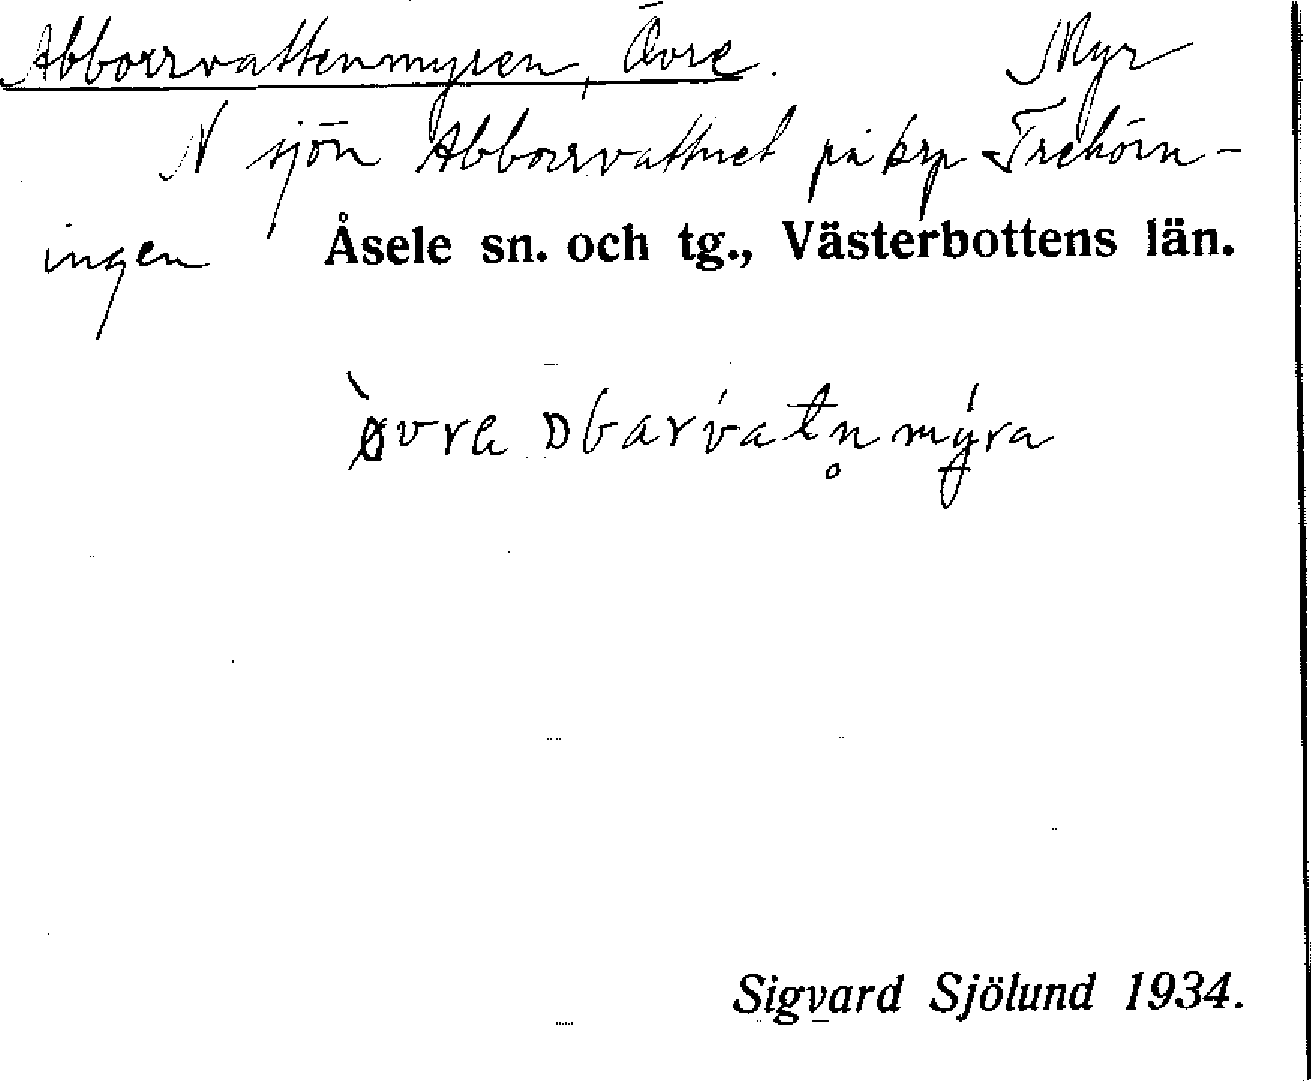 Abborrvattenmyren, Övre. Myr
N sjön Abborrvattnet på krp Trehörn-
ingen Åsele sn. och tg., Västerbottens län.
ø̀vra ɒbarv́atn̥mýra
Sigvard Sjölund 1934.